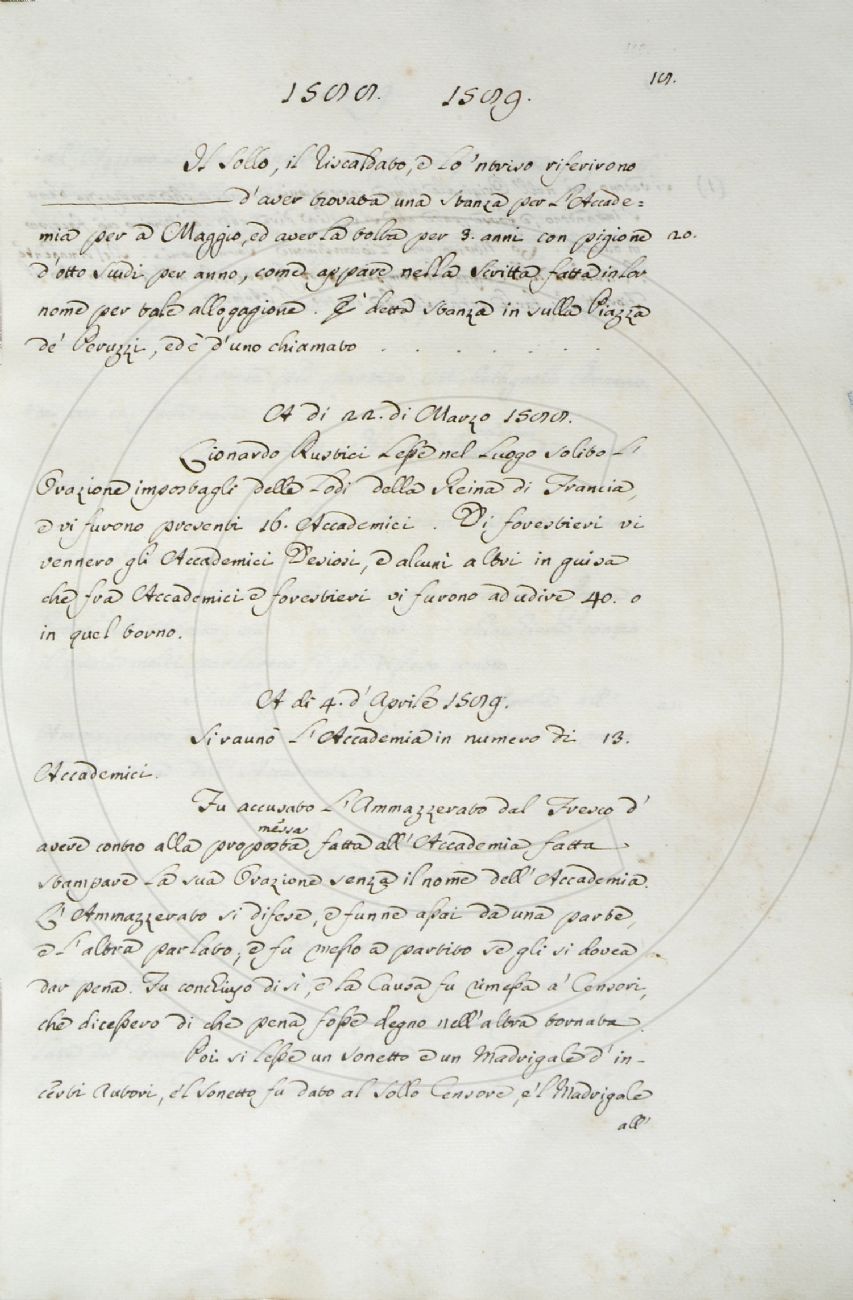 18.
1588. 1589.
Il Sollo, il Riscaldato, e lo 'ntriso riferirono
d'aver trovata una stanza per l'Accade=
mia per a Maggio, ed averla tolta per 3. anni con pigione 20.
d'otto scudi per anno, come appare nella scritta fatta in lor
nome per tale allogagione. E' detta stanza in sulla Piazza
de' Peruzzi, ed è d'uno chiamato . . . . . . .
A di 22. di Marzo 1588.
Lionardo Rustici lesse nel luogo solito l'
Orazione impostagli delle lodi della Reina di Francia,
e vi furono presenti 16. Accademici. Di forestieri vi
vennero gli Accademici Desiosi, e alcuni altri in guisa
che fra Accademici e forestieri vi furono ad udire 40. o
in quel torno.
A di 4. d'Aprile 1589.
Si raunò l'Accademia in numero di 13.
Accademici.
Fu accusato l'Ammazzerato dal Fresco d'
messa
avere contro alla proposta fatta all'Accademia fatta
stampare la sua Orazione senza il nome dell'Accademia.
L'Ammazzerato si difese, e funne assai da una parte,
e l'altra parlato, e fu messo a partito se gli si dovea
dar pena. Fu concluso di sì, e la Causa fu rimessa a' Censori,
che dicessero di che pena fosse degno nell'altra tornata.
Poi si lesse un sonetto e un Madrigale d'in-
certi Autori, e'l sonetto fu dato al Sollo Censore, e'l Madrigale
all'